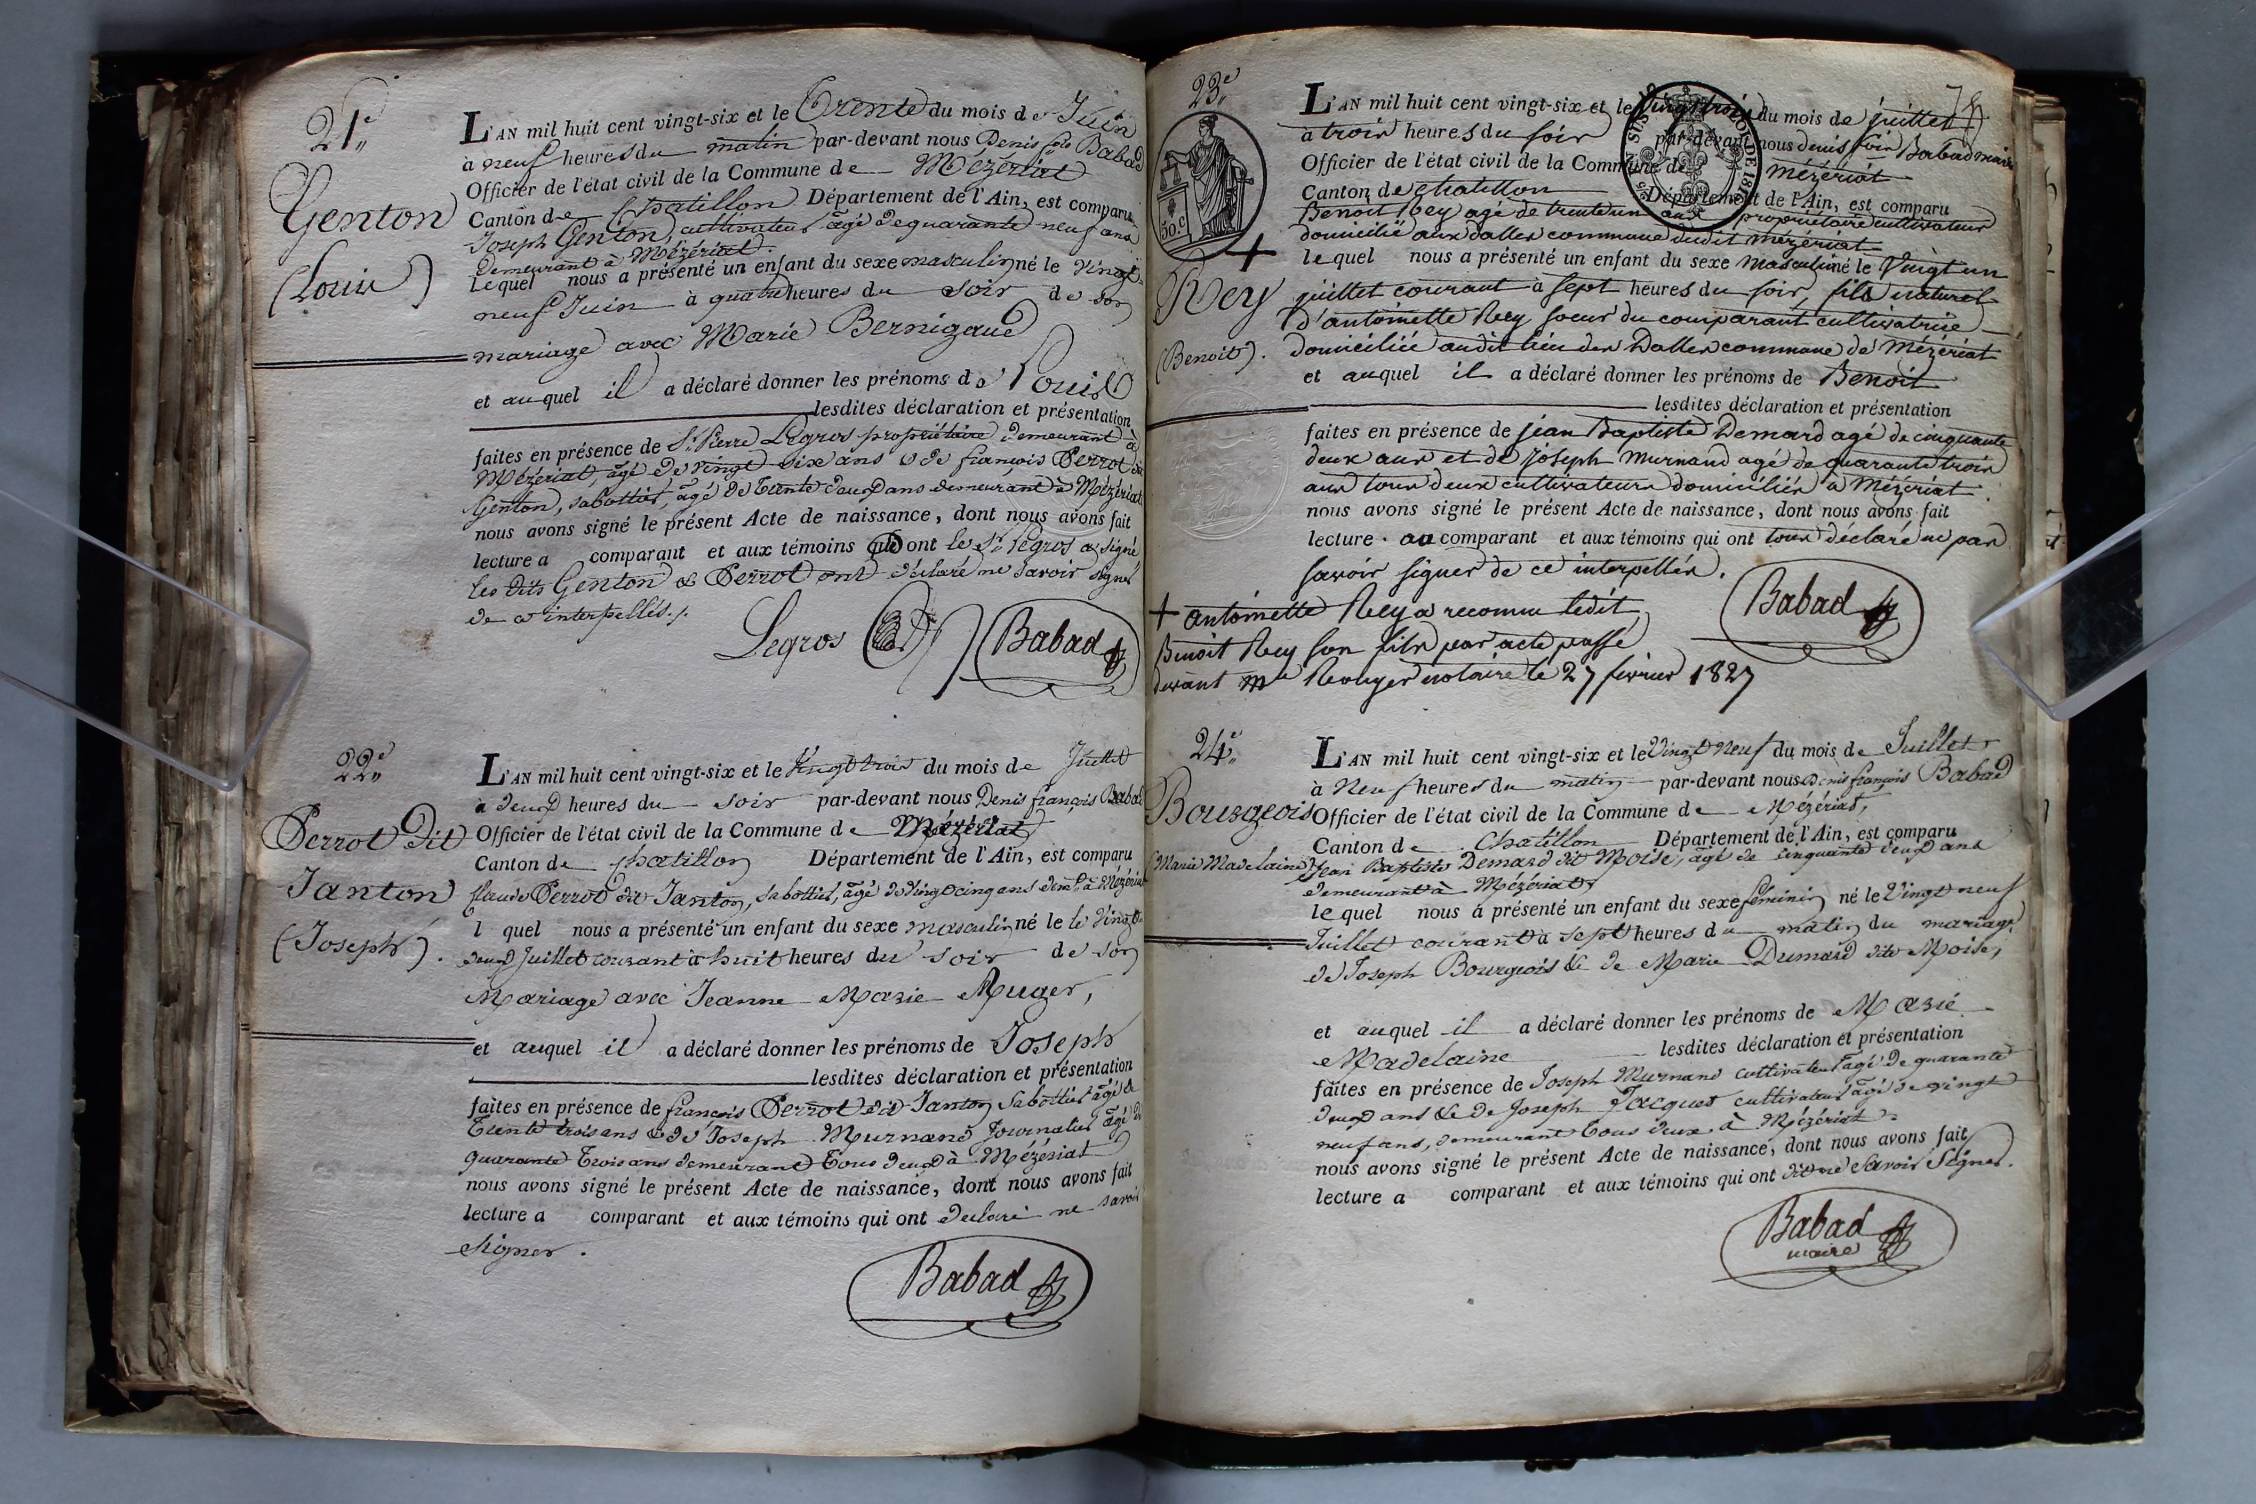 21.e
Genton
(Louis)
L'AN mil huit cent vingt-six et le Trente du mois de Juin
à neuf heures du matin par-devant nous Denis fçois Babad
Officier de l'état civil de la Commune de Mézériat
Canton de Chatillon Département de l'Ain, est comparu
Joseph Genton, cultivateur âgé de quarante neuf ans
demeurant à Mézériat.
Lequel nous a présenté un enfant du sexe masculin né le vingt
neuf Juin à quatre heures du soir de son
mariage avec Marie Bernigaud
et auquel il a déclaré donner les prénoms de Louis
lesdites déclaration et présentation
faites en présence de Sr. Pierre Legros propriétaire demeurant à
Mézériat, âgé de vingt six ans & de françois Perrot dit
Genton, sabottier, âgé de Trente deux ans demeurant à Mézériat
nous avons signé le présent Acte de naissance, dont nous avons fait
lecture a comparant et aux témoins qui ont le Sr. Legros a signé
les dits Genton & Perrot ont déclaré ne savoir signer
de ce interpellés ./.
Legros Babad
22.e
Perrot dit
Janton
(Joseph).
L'AN mil huit cent vingt-six et le Vingt trois du mois de Juillet
à deux heures du soir par-devant nous Denis françois Babad
Officier de l'état civil de la Commune de Mézériat
Canton de Chatillon Département de l'Ain, est comparu
Claude Perrot dit Janton, sabottier, âgé de vingt cinq ans demt. à Mézériat
l quel nous a présenté un enfant du sexe masculin né le le vingt
deux Juillet courant à huit heures du soir de son
Mariage avec Jeanne Marie Muger,
et auquel il a déclaré donner les prénoms de Joseph
lesdites déclaration et présentation
faites en présence de françois Perrot dit Janton sabottier âgé de
Trente trois ans & de Joseph Murnand Journalier âgé de
quarante Trois ans demeurant tous deux à Mézériat
nous avons signé le présent Acte de naissance, dont nous avons fait
lecture a comparant et aux témoins qui ont déclaré ne savoir
signer.
Babad
23.e
30.C
Rey
(Benoit).
L'AN mil huit cent vingt-six et le vingt trois du mois de juillet
à trois heures du soir par-devant nous denis fçois Babad maire
Officier de l'état civil de la Commune de mézériat
Canton de chatillon Département de l'Ain, est comparu
Benoit Rey agé de trente un ans propriétaire cultivateur
domicilié aux dalles commune dudit mézériat
lequel nous a présenté un enfant du sexe masculin né le vingt un
juillet courant à sept heures du soir, fils naturel
d'antoinette Rey soeur du comparant cultivatrice
domiciliée audit lieu des Dalles commune de Mézériat
et auquel il a déclaré donner les prénoms de Benoit
lesdites déclaration et présentation
faites en présence de jean Baptiste Demard agé de cinquante
deux ans et de joseph murnand agé de quarante trois
ans tous deux cultivateurs domiciliés à Mézériat.
nous avons signé le présent Acte de naissance, dont nous avons fait
lecture au comparant et aux témoins qui ont tous déclaré ne pas
savoir signer de ce interpellés.
Babad
+ antoinette Rey a reconnu ledit
Benoit Rey son fils par acte passé
devant me notaire le 27 février 1827
24.e
Bourgeois
(Marie Madelaine)
L'AN mil huit cent vingt-six et le Vingt Neuf du mois de Juillet
à Neuf heures du matin par-devant nous Denis françois Babad
Officier de l'état civil de la Commune de Mézériat,
Canton de Chatillon Département de l'Ain, est comparu
Jean Baptiste Demard dit Moise, âgé de cinquante deux ans
demeurant à Mézériat,
lequel nous a présenté un enfant du sexe féminin né le Vingt neuf
Juillet courant à sept heures du matin du mariage
de Joseph Bourgeois & de Marie Dumard dite Moise,
et auquel il a déclaré donner les prénoms de Marie
Madelaine lesdites déclaration et présentation
faites en présence de Joseph Murnand cultivateur âgé de quarante
deux ans & de Joseph Jacquet cultivateur âgé de vingt
neuf ans, demeurant tous deux à Mézériat.
nous avons signé le présent Acte de naissance, dont nous avons fait
lecture a comparant et aux témoins qui ont dit ne savoir signer.
Babad
maire